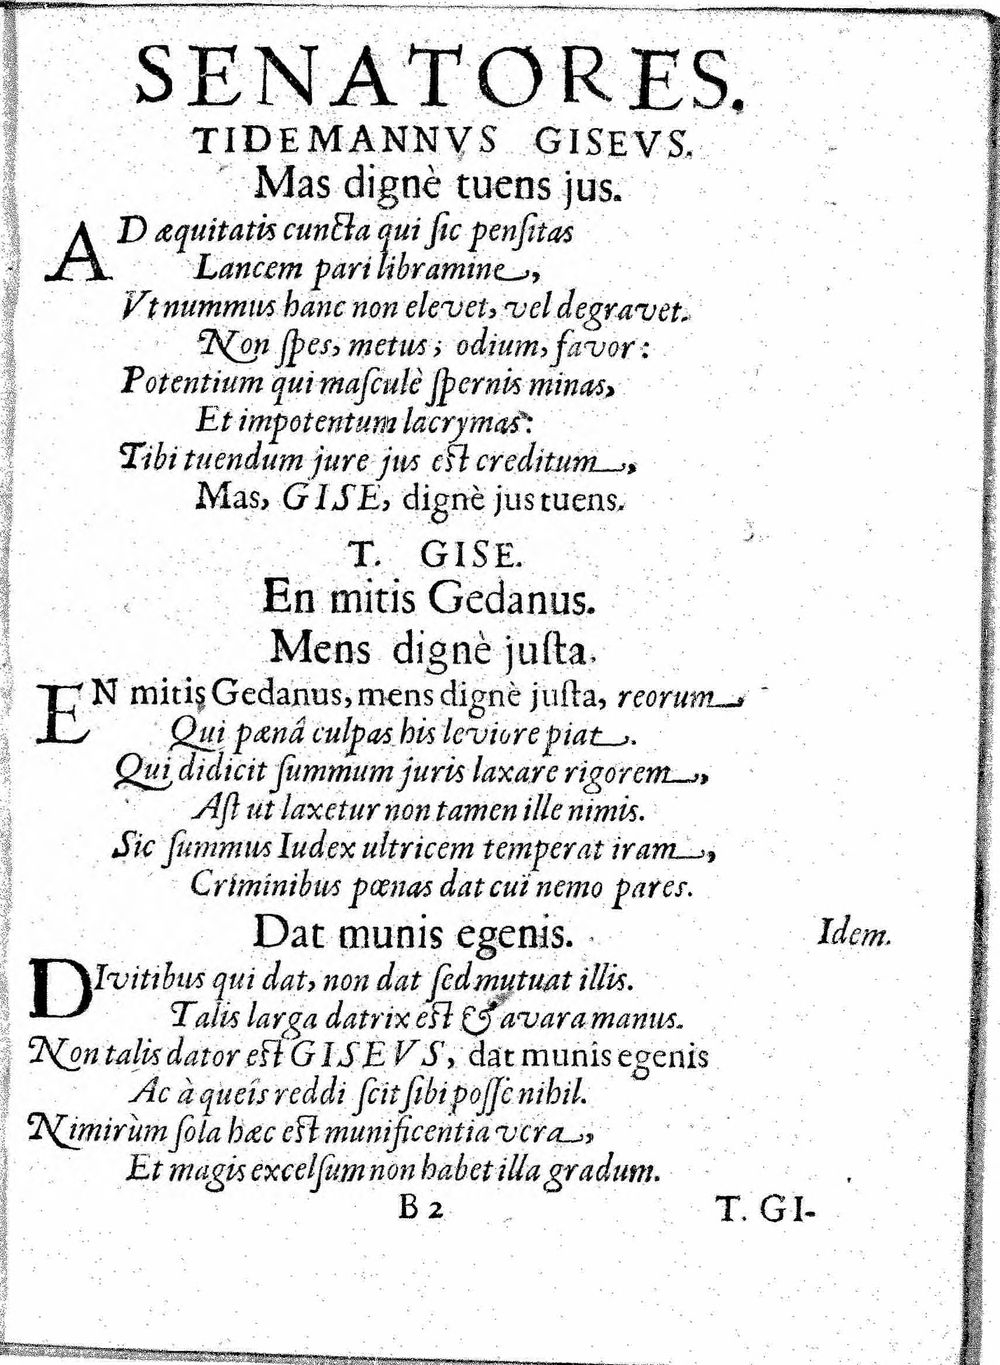 SENATORES.
TIDEMANNVS GISEVS.
Mas dignè tuens jus.
AD æquitatis cuncta qui ſic penſitas
Lancem pari libramine,
Vt nummus hanc non elevet, vel degravet.
Non ſpes, metus, odium, favor:
Potentium qui maſculè ſpernis minas,
Et impotentum lacrymas:
Tibi tuendum jure jus est creditum,
Mas, GISE, dignè jus tuens.
T. GISE.
En mitis Gedanus.
Mens dignè juſta.
EN mitis Gedanus, mens dignè juſta, reorum
Qui pœnâ culpas his leviore piat.
Qui didicit ſummum juris laxare rigorem,
Aſt ut laxetur non tamen ille nimis.
Sic ſummus Iudex ultricem temperat iram,
Criminibus pœnas dat cui nemo pares.
Dat munis egenis. Idem.
DIvitibus qui dat, non dat ſed mutuat illis.
Talis larga datrix est & avara manus.
Non talis dator est GISEVS, dat munis egenis
Ac à queîs reddi ſcit ſibi poſſe nihil.
Nimirùm ſola hæc est munificentia vera,
Et magis excelſum non habet illa gradum.
B 2 T. GI-